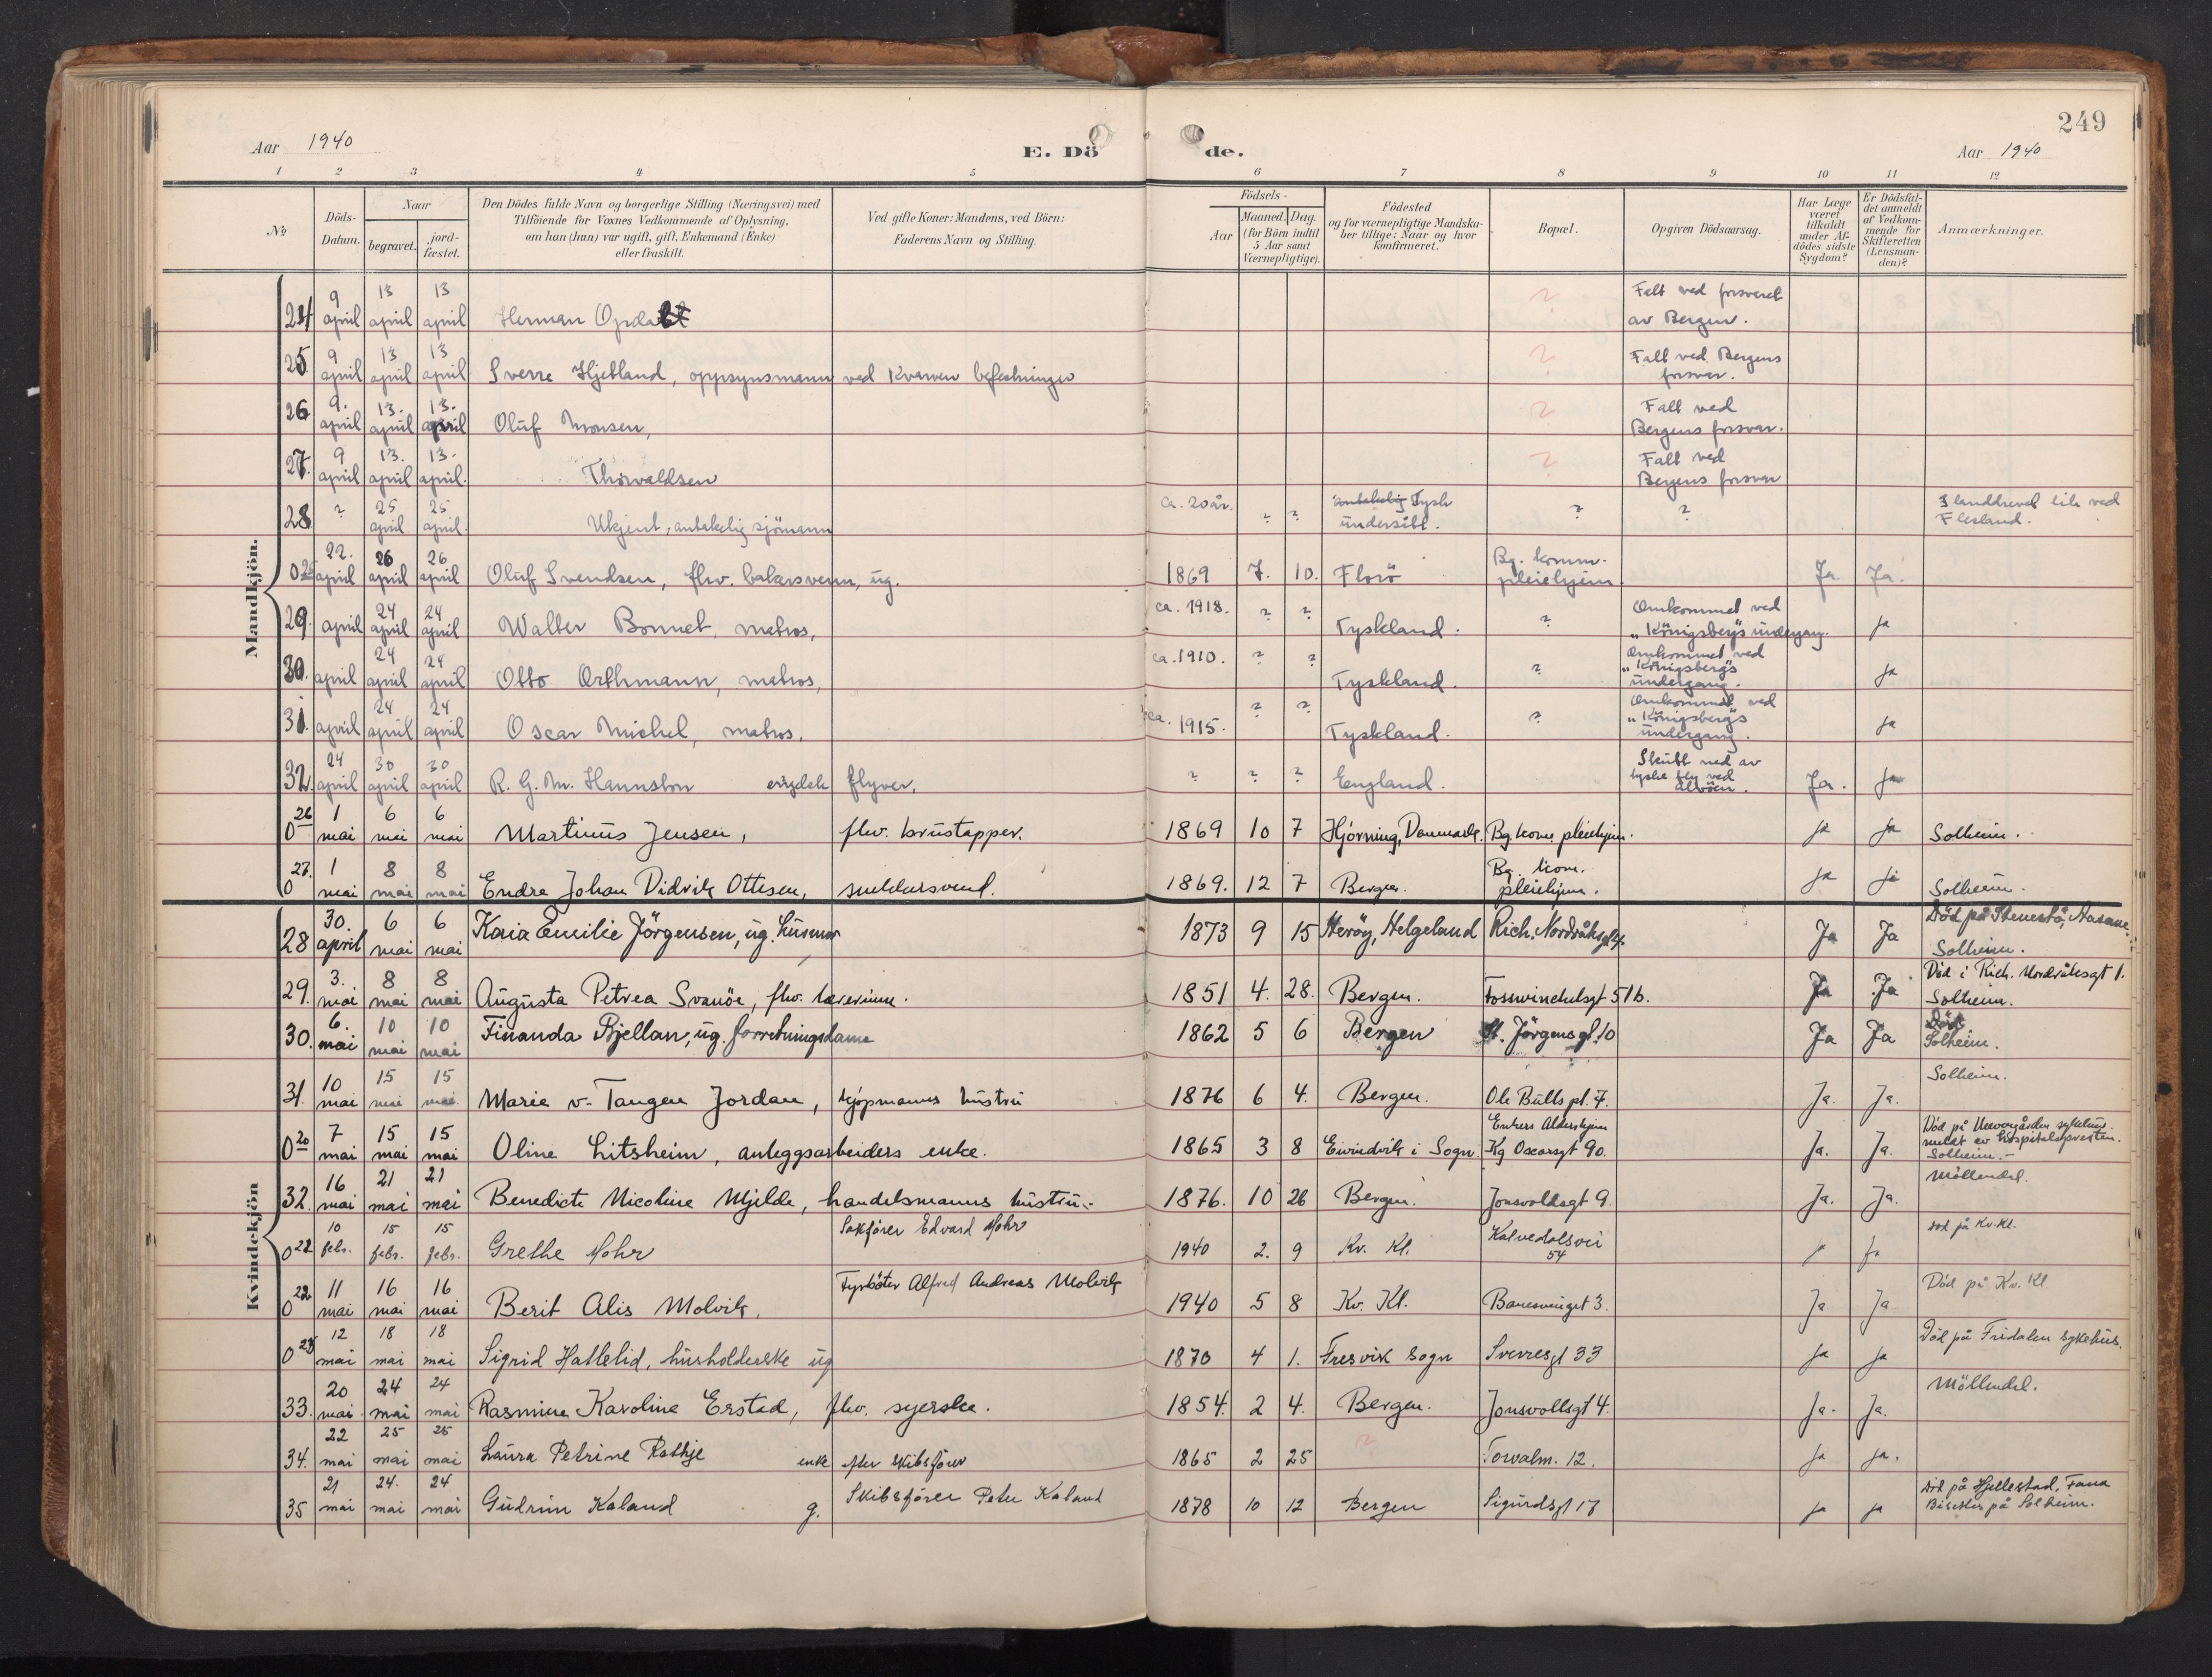 249
Aar 1940 E. Dö de. Aar 1940
1 2 3 4 5 6 7 8 9 10 11 12
No
Döds-Datum.
Naar
begravet.
jord-fæstet.
Den Dödes fulde Navn og borgerlige Stilling (Næringsvei) med
Tilföiende for Voxnes Vedkommende af Oplysning,
om han (hun) var ugift, gift, Enkemand (Enke)
eller fraskilt.
Ved gifte Koner: Mandens, ved Börn:
Faderens Navn og Stilling.
Födsels-
Aar
Maaned. Dag.
(for Börn indtil
5 Aar samt
Værnepligtige).
Födested
og for værnepligtige Mandska-
ber tillige: Naar og hvor
konfirmeret.
Bopæl.
Opgiven Dödsaarsag.
Har Læge
været
tilkaldt
under Af-
dödes sidste
Sygdom?
Er Dödsfal-
det anmeldt
af Vedkom-
mende for
Skifteretten
(Lensman-
den)?
Anmærkninger.
Mandkjön.
24 9 april 13 april 13 april Herman Opdal ? Falt ved forsvaret av Bergen.
25 9 april 13 april 13 april Sverre Hjetland, oppsynsmann ved Kvarven befestninger ? Falt ved Bergens forsvar.
26 9. april 13. april 13. april Oluf Monsen, ? Falt ved Bergens forsvar.
27. 9 april 13. april 13. april. Thorvaldsen ? Falt ved Bergens forsvar
28 ? 25 april 25 april. Ukjent, antakelig sjömann ca. 20 år. ? ? antakelig Tysk undersått. ? ? Ilanddrevet lik ved Flesland.
0 25 22. april 26 april 26 april Oluf Svendsen, fhv. bakersvenn, ug. 1869 7. 10. Florö Bg. komm. pleiehjem Ja. Ja.
29. april 24 april 24 april Walter Bonnet, matros, ca. 1918. ? ? Tyskland. ? Omkommet ved "Königsberg's undergang. Ja
30. april 24 april 24 april Otto Orthmann, matros, ca. 1910. ? ? Tyskland. ? Omkommet ved "Königsberg's undergang. Ja
31. april 24 april 24 april Oscar Michel, matros. ca. 1915. ? ? Tyskland. ? Omkommet ved "Königsberg's undergang. Ja
32. 24 april 30 april 30 april R. G. M. Hannston engelsk flyver. ? ? ? England. Skutt ned av tyske fly ved Alvöen. Ja. Ja
0 26 1 mai 6 mai 6 mai Martinus Jensen, fhv. brustapper. 1869 10 7 Hjörning, Danmark. Bg kom. pleiehjem. Ja Ja Solheim.
0 27. 1 mai 8 mai 8 mai Endre Johan Didrik Ottesen, snekkersvend. 1869. 12 7 Bergen. Bg. kom. pleiehjem. Ja Ja Solheim.
Kvindekjön
28 30. april 6 mai 6 mai Karia Emilie Jörgensen, ug. husmor 1873 9 15 Heröy, Helgeland Rich. Nordråksgt 4. Ja Ja Död på Stenestö, Aasane. Solheim.
29. 3. mai 8 mai 8 mai Augusta Petrea Svanöe, fhv. lærerinne. 1851 4. 28. Bergen. Fosswinckelsgt 51b. Ja Ja Död i Rich. Nordråksgt 1. Solheim.
30. 6. mai 10 mai 10 mai Finanda Bjellan, ug. forretningsdame 1862 5 6 Bergen St. Jörgensgt. 10 Ja Ja Död Solheim.
31. 10 mai 15 mai 15 mai Marie v. Tangen Jordan, kjöpmanns hustru 1876 6 4. Bergen. Ole Bulls pl. 7. Ja. Ja. Solheim.
0 20 7 mai 15 mai 15 mai Oline Litsheim, anleggsarbeiders enke. 1865 3 8 Eivindvik i Sogn. Enkers Aldershjem Kg Oscarsgt 90. Ja. Ja. Död på Neevengården sykehus. meldt av hospitalspresten. Solheim.-
32. 16 mai 21 mai 21 mai Benedicte Nicoline Mjelde, handelsmanns hustru. 1876. 10 26 Bergen. Jonsvoldsgt 9. Ja. Ja. Möllendal.
0 22 10 febr. 15 febr. 15 febr. Grethe Mohr Sakförer Edvard Mohr 1940 2. 9 Kv. Kl. Kalvedalsvei 54 Ja Ja död på Kv. Kl.
0 22 11 mai 16 mai 16 mai Berit Alis Molvik. Fyrböter Alfred Andreas Molvik 1940 5 8 Kv. Kl. Banesvinget 3. Ja Ja Död på Kv. Kl
0 23 12 mai 18 mai 18 mai Sigrid Hatlelid, husholderske ug 1870 4 1. Fresvik Sogn Sverresgt 33 Ja Ja Död på Fridalen sykehus.
33. 20 mai 24 mai 24 mai Rasmine Karoline Erstad, fhv. syerske. 1854. 2 4. Bergen. Jonsvollsgt 4. Ja. Ja. Möllendal.
34. 22 mai 25 mai 25 mai Laura Petrine Rathje enke efter skibsförer 1865 2 25 ? Torvalm. 12. Ja Ja.
35 21 mai 24. mai 24 mai Gudrun Kaland g. Skibsförer Peter Kaland 1878 10 12 Bergen Sigurdsgt 17 Ja Ja Död på Hjellestad, Fana Bisettes på Solheim.